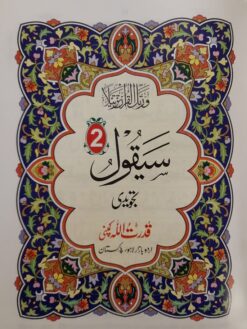 ورتل القرآن ترتیلا
2
سیقول
تجویدی
قدرت اللہ کمپنی
اردو بازار لاہور پاکستان